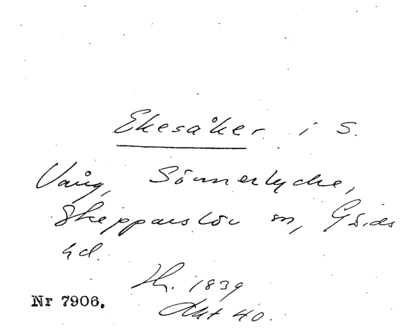 Ekesåker i S.
Vång, Sönnerlycke,
Skepparslöv sn, Gärds
hd.
Th. 1839
Akt 40.
Nr 7906.